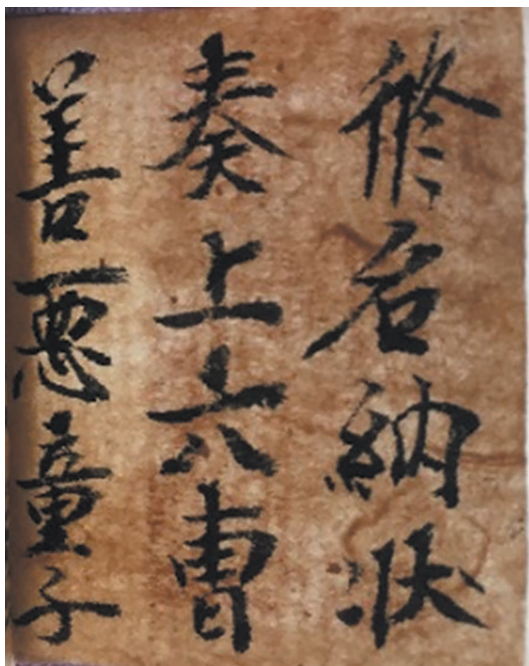 修名納狀
奏上六曹
善悪童子